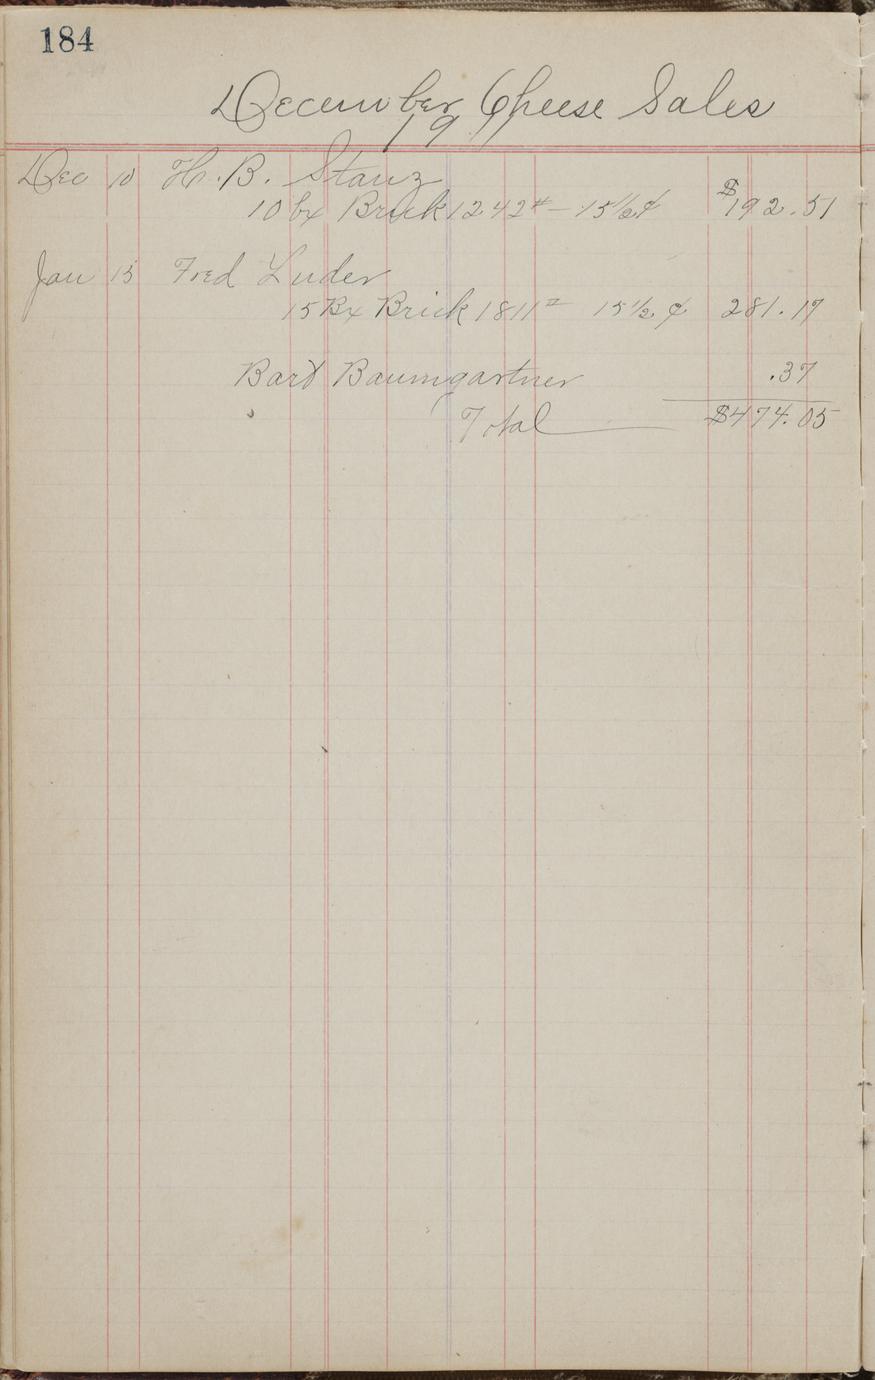 184
December Cheese Sales
1911
Dec 10 H. B. Stanz
10 bx Brick 1242# – 15½¢ $192.51
Jan 15 Fred Luder
15 Bx Brick 1811# 15½ ¢ 281.17
Bart Baumgartner .37
Total $474.05